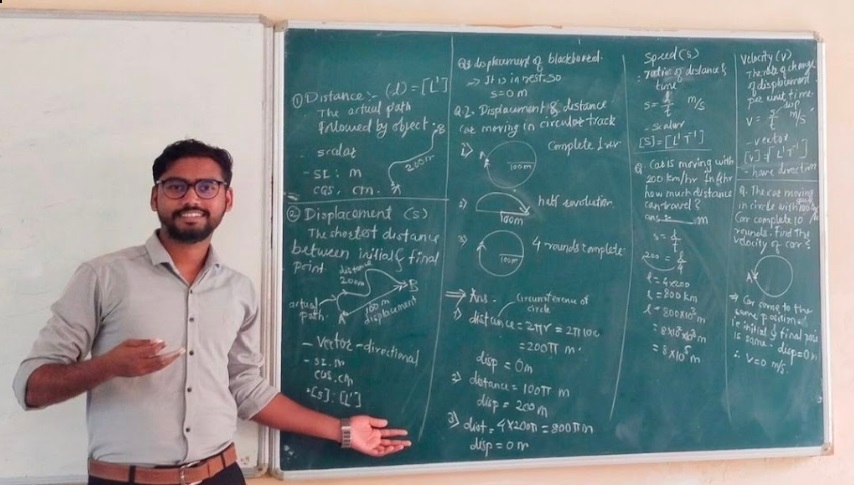 ① Distance :- (l) = [L¹]
The actual path
followed by object.
B
- scalar
200m
A
- SI : m
CGS, cm.
② Displacement (S)
The shortest distance
between initial & final
point
distance
200m
B
actual
path
100m
displacement
A
- Vector - directional
- SI. m
CGS. cm
[S] : [L¹]
Q.1 displacement of blackboard.
→ It is in rest. so
s = 0 m
Q.2. Displacement & distance
car moving in circular track
1)
100m
Complete 1 rev
2)
100m
half revolution
3)
100m
4 rounds complete
⇒ Ans -
Circumference of
circle
1) distance = 2πr = 2π100
= 200π m
disp = 0m
2) distance = 100π m
disp = 200m
3) dist = 4×200π = 800π m
disp = 0 m
Speed (s)
ratio of distance &
time
s = l/t m/s
- scalar
[S] = [L¹T⁻¹]
Q. Car is moving with
200 km/hr In 4hr
how much distance
can travel?
ans :- m
s = l/t
200 = l/4
l = 4×200
l = 800 km
l = 800×10³ m
= 8×10²×10³ m
= 8×10⁵ m
Velocity (V)
The rate of change
of displacement
per unit time.
V = disp m/s
- vector
[V] = [L¹T⁻¹]
- have direction
Q. The car moving
in circle with
Car complete 10
rounds. Find the
velocity of car?
A
⇒ Car come to the
same position
ie initial & final
is same disp = 0 m
∴ V = 0 m/s